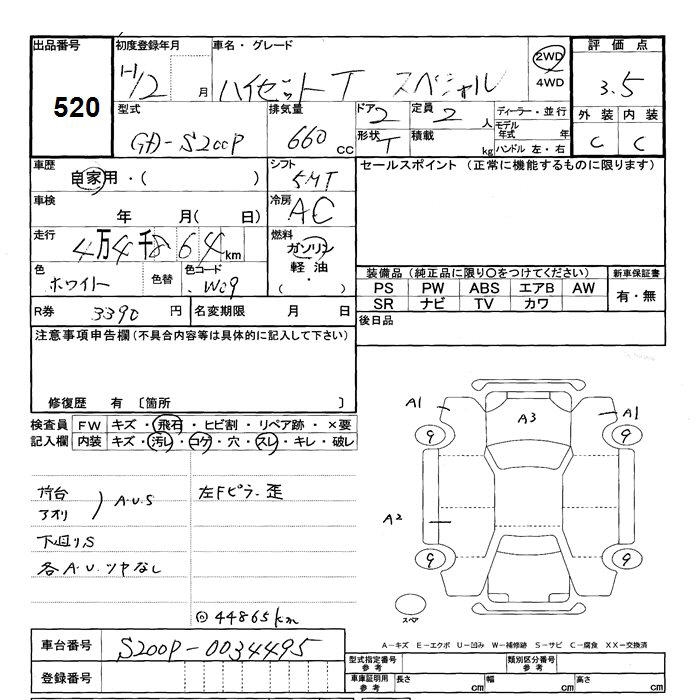 出品番号 初度登録年月 車名・グレード 評価点
520 H12 月 ハイゼットT スペシャル 2WD 4WD 3.5
外装 内装
C C
型式 排気量 ドア 2 定員 2 人 ディーラー・並行
GD-S200P 660 CC 形状 T 積載 kg モデル年式 年
ハンドル 左・右
車歴 自家用・( ) シフト 5MT セールスポイント (正常に機能するものに限ります)
車検 年 月( 日) 冷房 AC
走行 4万4千864km 燃料 ガソリン
軽油
・
( )
色 ホワイト 色替 色コード W09
装備品 (純正品に限り〇をつけてください) 新車保証書
PS PW ABS エアB AW 有・無
SR ナビ TV カワ
R券 3390 円 名変期限 月 日 後日品
注意事項申告欄 (不具合内容等は具体的に記入して下さい)
修復歴 有 〔箇所 〕
検査員 FW キズ・飛石・ヒビ割・リペア跡・×要
記入欄 内装 キズ・汚レ・コゲ・穴・スレ・キレ・破レ
荷台 左Fピラー歪
アオリ ) A.U.S
下回りS
各A.U.ツヤなし
◎44865km
A1 A3 A1
9 9
A2
9 9
スペア
A-キズ E-エクボ U-凹み W-補修跡 S-サビ C-腐食 XX-交換済
車台番号 S200P-0034495
登録番号
型式指定番号 参考 類別区分番号 参考
車庫証明用 参考 長さ cm 幅 cm 高さ cm